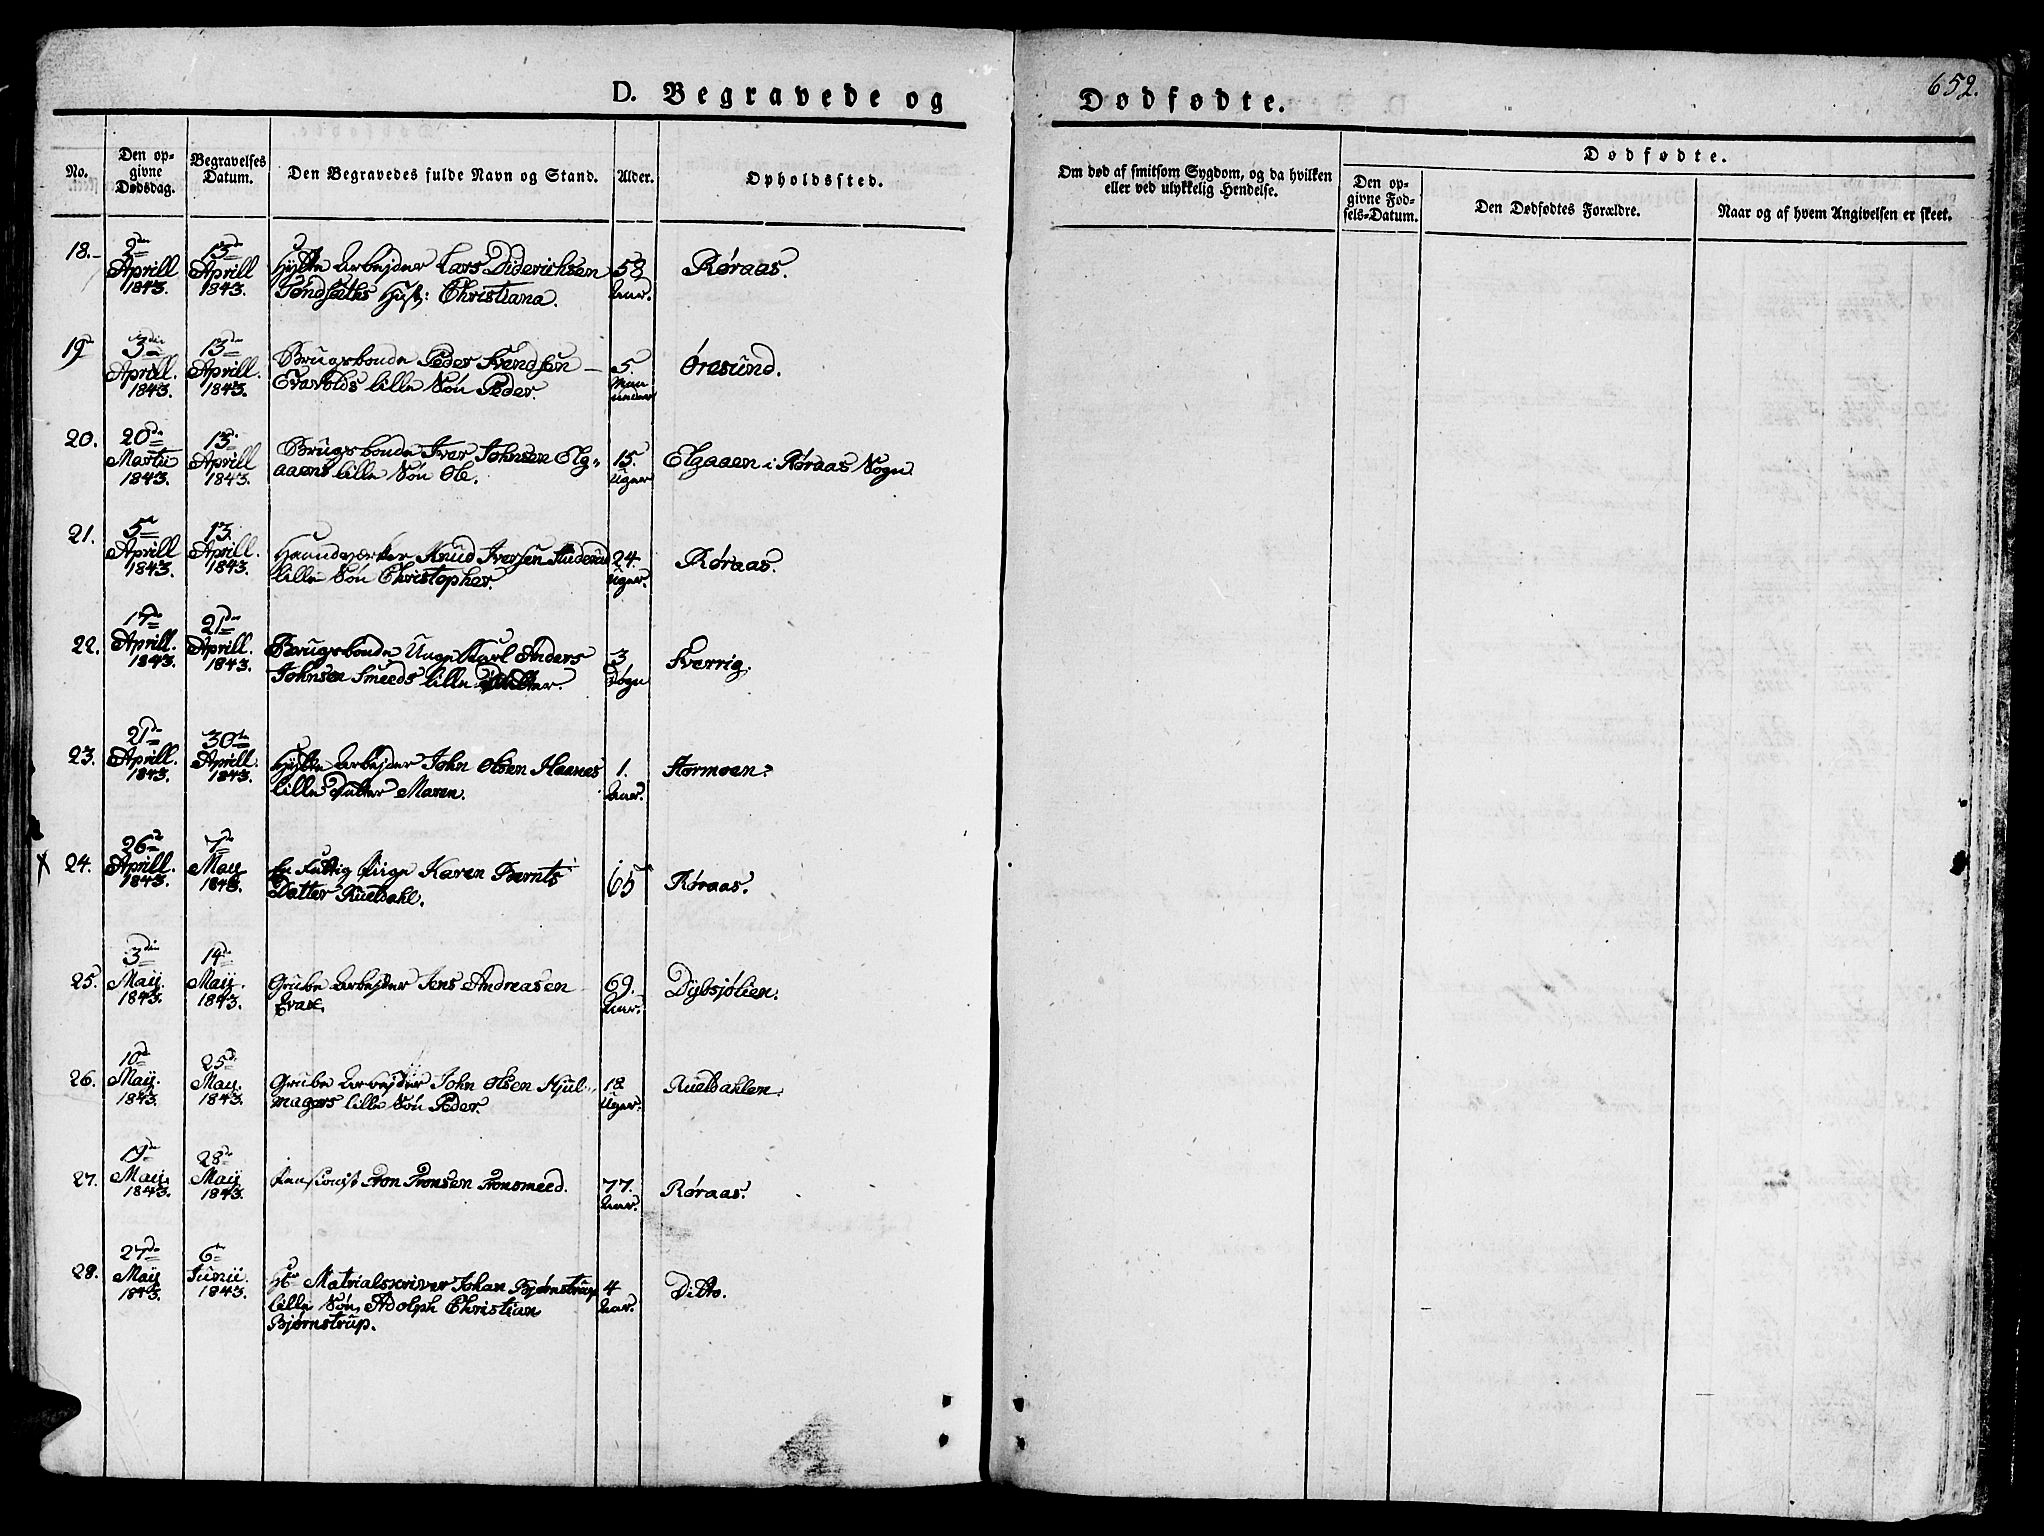 D. Begravede og
Dødfødte.
652.
No.
Den op-
givne
Dødsdag.
Begravelses
Datum.
Den Begravedes fulde Navn og Stand.
Alder.
Opholdssted.
Om død af smitsom Sygdom, og da hvilken
eller ved ulykkelig Hendelse.
Dødfødte.
Den op-
givne Fød-
sels-Datum.
Den Dødfødtes Forældre.
Naar og af hvem Angivelsen er skeet.
18.
2den
Aprill
1843.
13de
Aprill
1843.
Hytte Arbejder Lars Diderichsen
Tøndsæths Hust: Christiana.
58
Aar.
Røraas.
19
3die
Aprill.
1843.
13de
Aprill.
1843.
Brugsbonde Peder Svendsen
Evavolds lille Søn Peder.
5.
Maa
neder
Øresund.
20.
20de
Martii
1843.
13de
Aprill
1843.
Brugsbonde Iver Johnsen Elg-
aaens lille Søn Ole.
15.
Uger
Elgaaen i Røraas Sogn
21.
5te
Aprill
1843.
13.
Aprill.
1843.
Haandværker Knud Iversen
lille Søn Christopher.
24
Uger.
Røraas.
22.
17de
Aprill.
1843.
21de
Aprill.
1843.
Brugsbonde Unge Karl Anders
Johnsen Smeeds lille Datter.
3
Døgn
Sverrig.
23.
21de
Aprill.
1843.
30te
Aprill.
1843.
Hytte Arbejder John Olsen Haanes
lille Datter Maren.
1.
Aar.
Stormoen.
24.
26de
Aprill.
1843.
7de
May
1843.
En Fattig Pige Karen Bernts
Datter Rueldahl.
65
Røraas.
25.
3die
Maij.
1843.
14de
Maij.
1843.
Grube Arbejder Jens Andreasen
69.
Aar.
Dybsjølien.
26.
10de
Maij.
1843.
25de
May.
1843.
Grube Arbejder John Olsen Hjul-
magers lille Søn Peder.
18
Uger.
Rueldahlen.
27.
19de
Maij.
1843.
28de
Maij
1843.
Pensionist Tron Tronsen Tronsmeed.
77.
Aar.
Røraas.
28.
27de
Maij
1843.
6te
Junii.
1843.
Hr. Matrialskriver Johan Bjørnstrup
lille Søn, Adolph Christian
Bjørnstrup.
4
Aar.
Ditto.